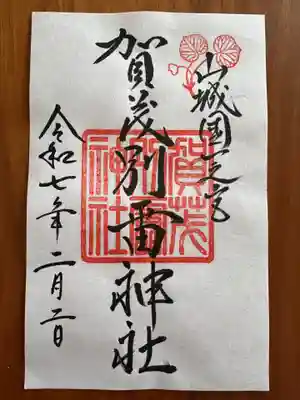 山城国一之宮
賀茂別雷神社
賀茂別雷神社
令和七年二月二日